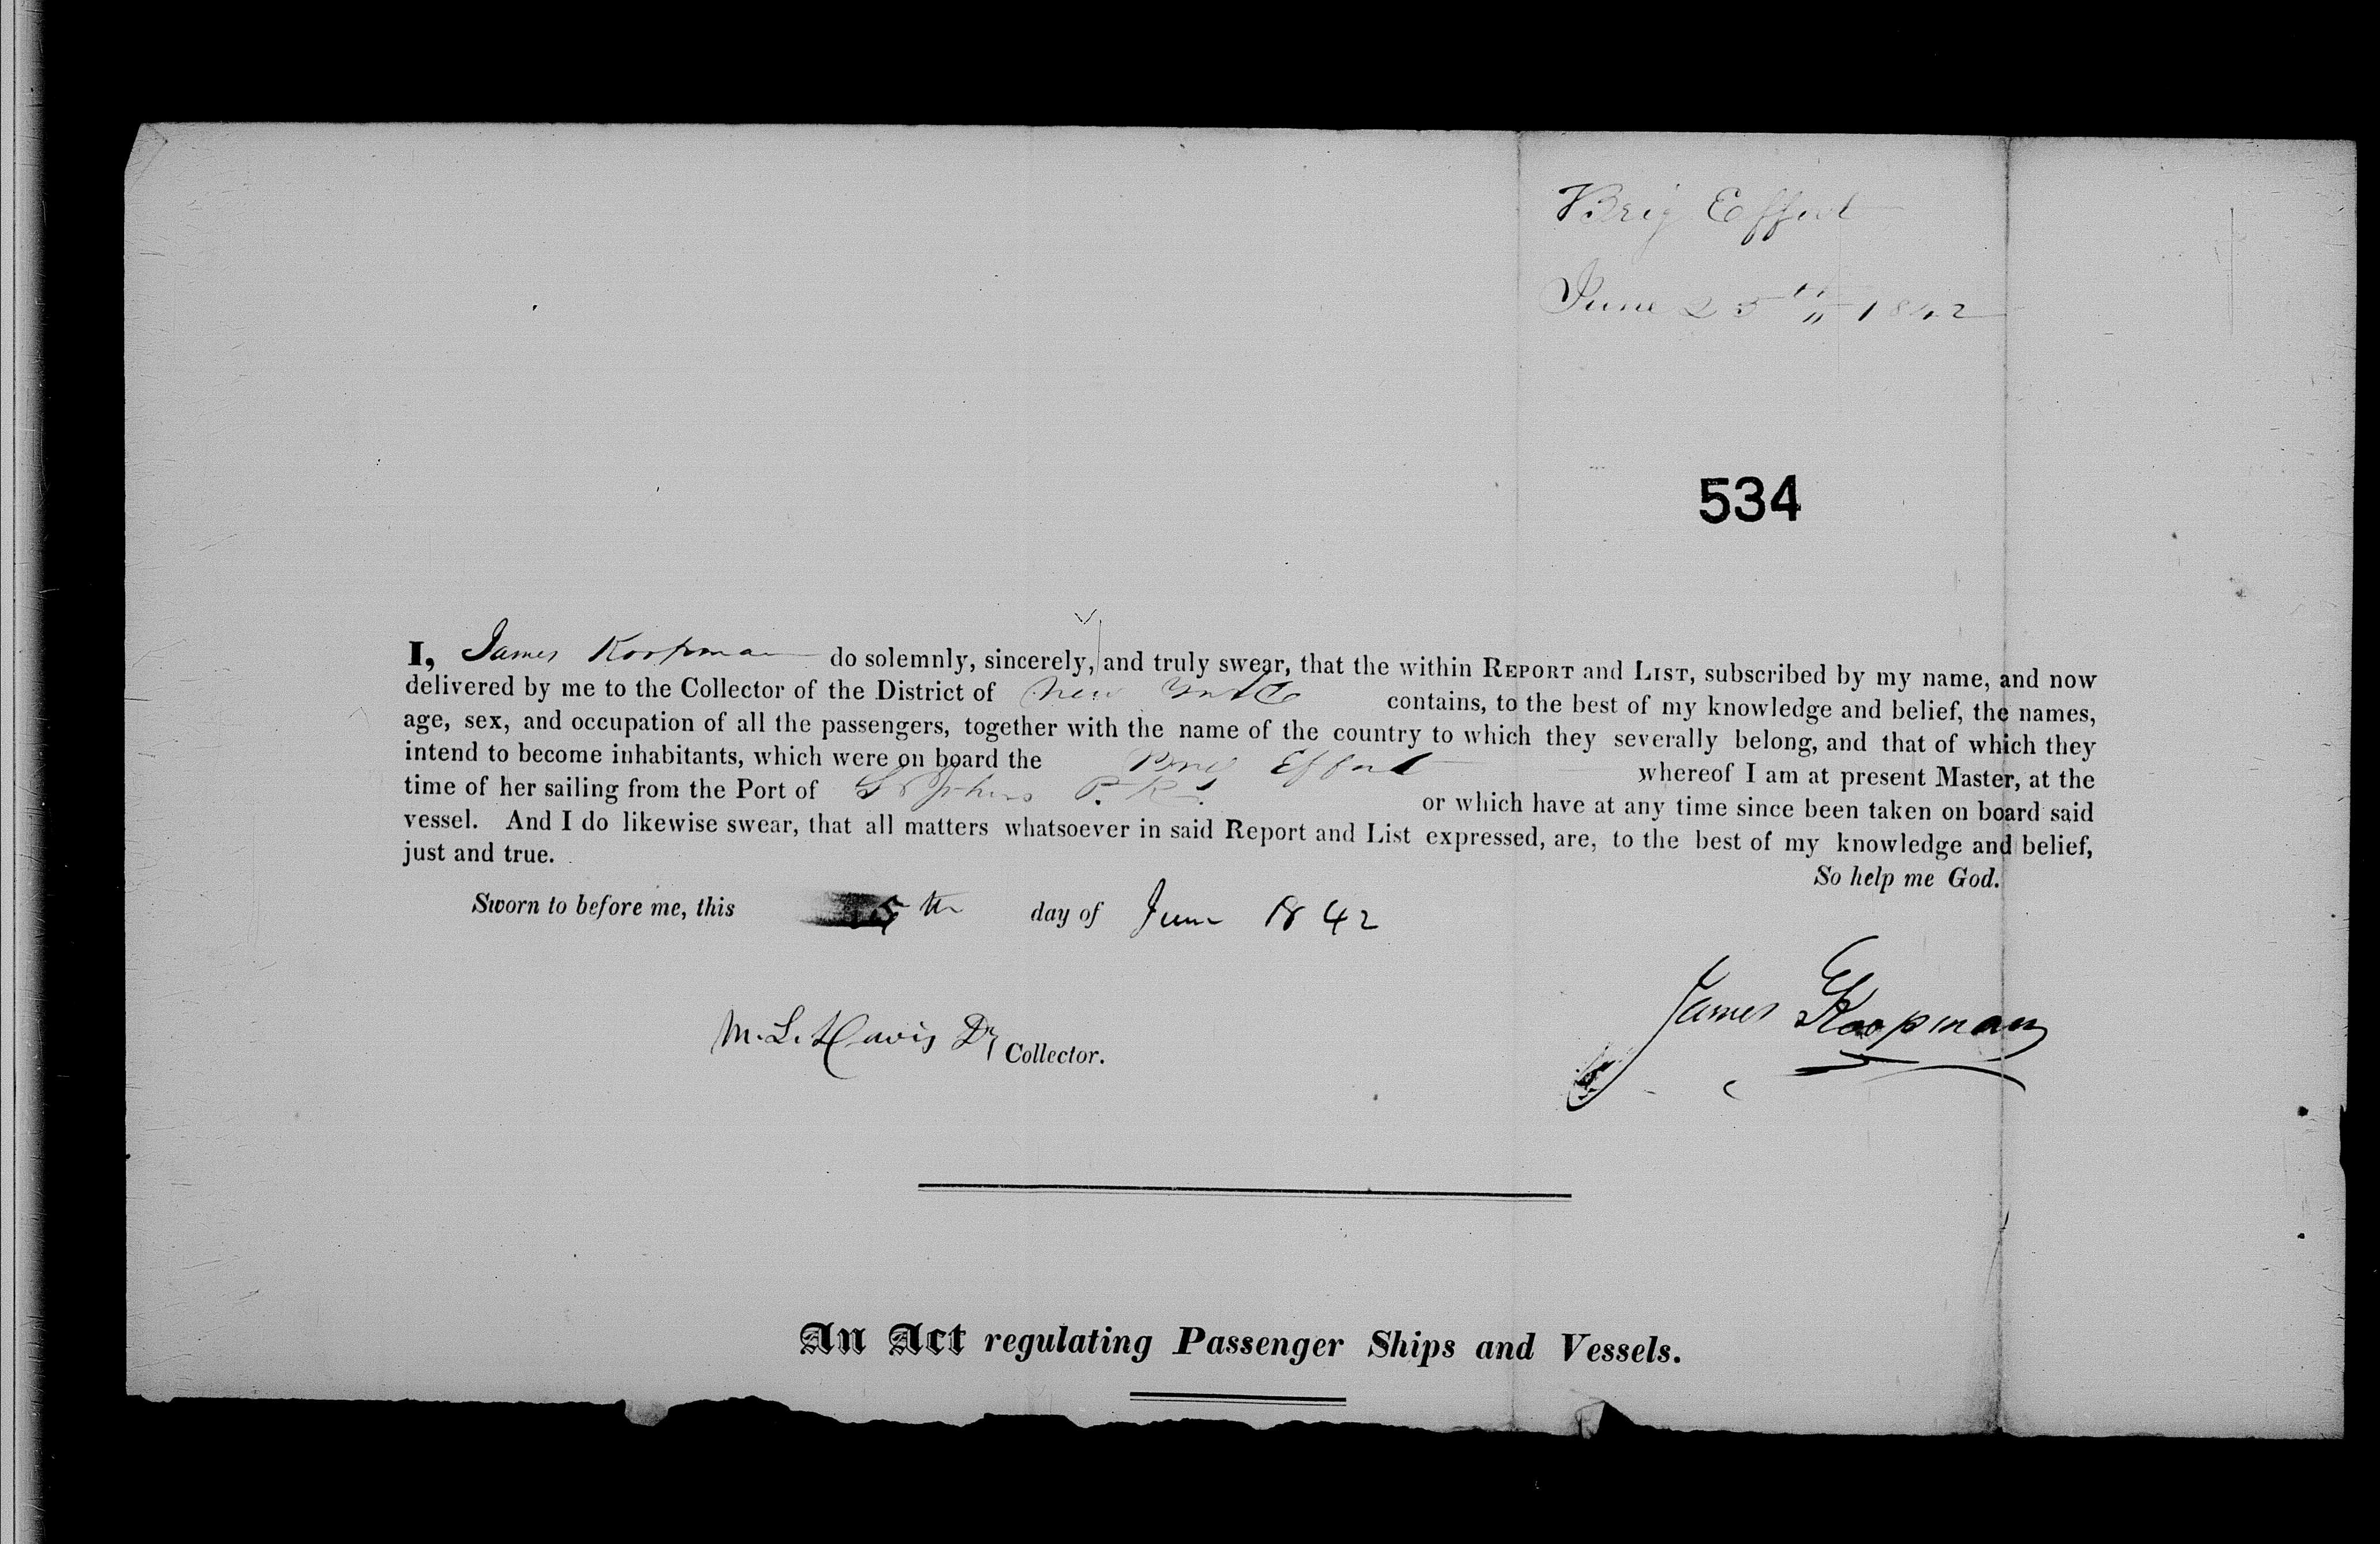 Brig Effort
June 25th 1842
534
I, James Koopman do solemnly, sincerely, and truly swear, that the within REPORT and LIST, subscribed by my name, and now
delivered by me to the Collector of the District of New York contains, to the best of my knowledge and belief, the names,
age, sex, and occupation of all the passengers, together with the name of the country to which they severally belong, and that of which they
intend to become inhabitants, which were on board the Brig Effort whereof I am at present Master, at the
time of her sailing from the Port of St Johns P. R. or which have at any time since been taken on board said
vessel. And I do likewise swear, that all matters whatsoever in said Report and List expressed, are, to the best of my knowledge and belief,
just and true.
So help me God.
Sworn to before me, this 25th day of June 1842
James Koopman
M. L. Davis Dy Collector.
An Act regulating Passenger Ships and Vessels.